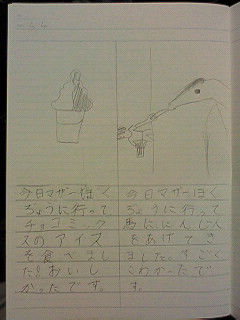 今日マザーぼく
じょうに行って
チョコミック
スのアイス
を食べました
たおいし
かったです。
今日マザーぼく
じょうに行って
馬ににんじん
をあげてき
ました。すごく
こわかったで
す。